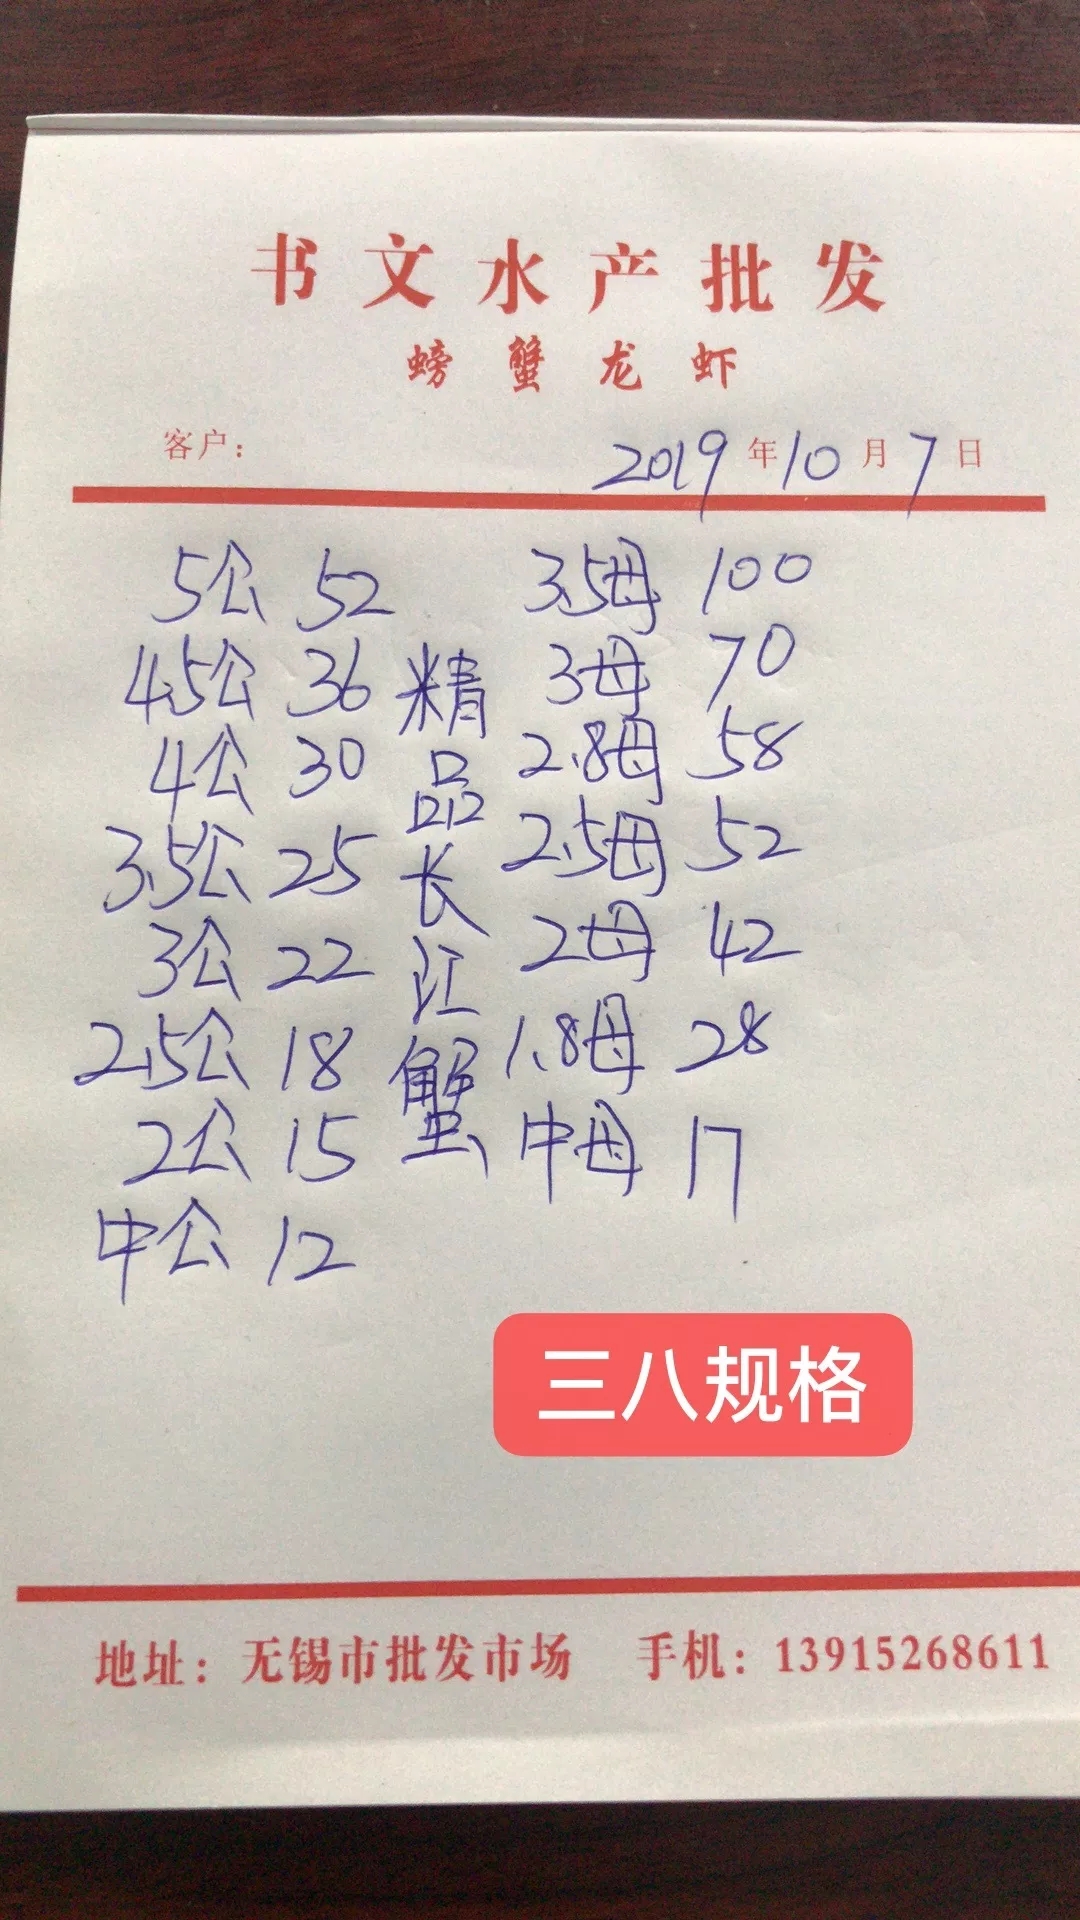 书文水产批发
螃蟹龙虾
客户： 2019年10月7日
5公 52 3.5母 100
4.5公 36 3母 70
4公 30 2.8母 58
3.5公 25 2.5母 52
3公 22 2母 42
2.5公 18 1.8母 28
2公 15 中母 17
中公 12
精品长江蟹
三八规格
地址：无锡市批发市场 手机：13915268611